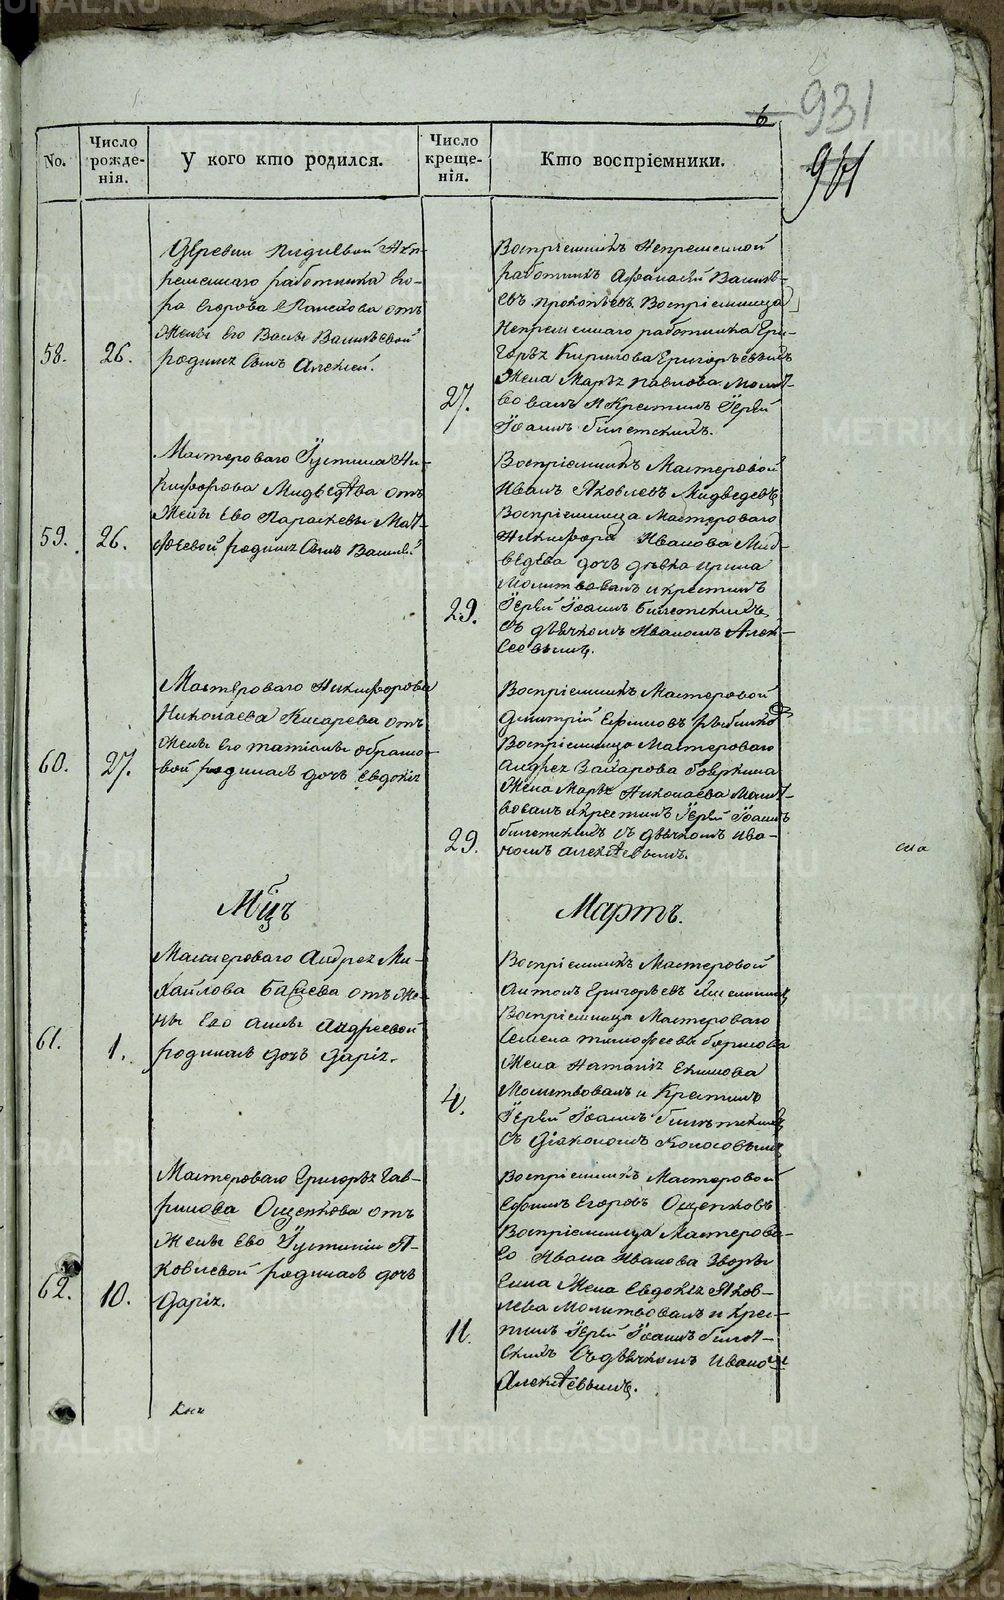 931
6
No.
Число рожденія.
У кого кто родился.
Число крещенія.
Кто воспріемники.
58.
26.
Деревни
ременнаго работника Его-
ра Егорова отъ
Жены Его Васильевой
родился Сынъ Алексей.
27.
Воспріемникъ Непременной
работникъ Афанасей Василь-
евъ Прокопьевъ Воспріемница
Непременнаго работника Гри-
горья Кирилова
Жена Марья Павлова Молит-
вовалъ и Крестилъ Іерей
Іоаннъ Билетскихъ.
59.
26.
Мастероваго Іустина Ни-
кифорова Мидведева отъ
Жены Ево Параскевы Мат-
феевой родился Сынъ Василей
29.
Воспріемникъ Мастеровой
Иванъ Яковлевъ Мидведевъ
Воспріемница Мастероваго
Никифора Иванова Мид-
ведева дочь девка Ирина
Молитвовалъ и крестилъ
Іерей Іоаннъ Билетскихъ
Съ дьячкомъ Иваномъ Алек-
сеевымъ.
60.
27.
Мастероваго Никифорова
Николаева Писарева отъ
Жены Его татіаны
вой родилась дочь Евдокія
29.
Воспріемникъ Мастеровой
Дмитрій Ефимовъ
Воспріемница Мастероваго
Андрея Захарова
Жена Марья Николаева Молит-
вовалъ и крестилъ Іерей Іоаннъ
билетскихъ съ дьячкомъ Ива-
номъ алексеевымъ.
Мцъ
Мартъ.
61.
1.
Мастероваго Андрея Ми-
хайлова отъ Же-
ны Ево Анны Андреевой
родилась дочь Дарія.
4.
Воспріемникъ Мастеровой
Антонъ Григорьевъ
Воспріемница Мастероваго
Семена тимофеевы
Жена Наталія Екимова
Молитвовалъ и Крестилъ
Іерей Іоаннъ билетскихъ
Съ Діакономъ Колосовымъ
62.
10.
Мастероваго Григорья Гав-
рилова Ощепкова отъ
Жены Ево Іустиніи Я-
ковлевой родилась дочь
Дарія.
11.
Воспріемникъ Мастеровой
Ефимъ Егоровъ Ощепковъ
Воспріемница Мастерова-
го Ивана Иванова Зверь
Жена Евдокія Яков-
лева Молитвовалъ и Крес-
тилъ Іерей Іоаннъ билет-
скихъ Съ дьячкомъ Ивано
Алексеевымъ.
METRIKI.GASO-URAL.RU